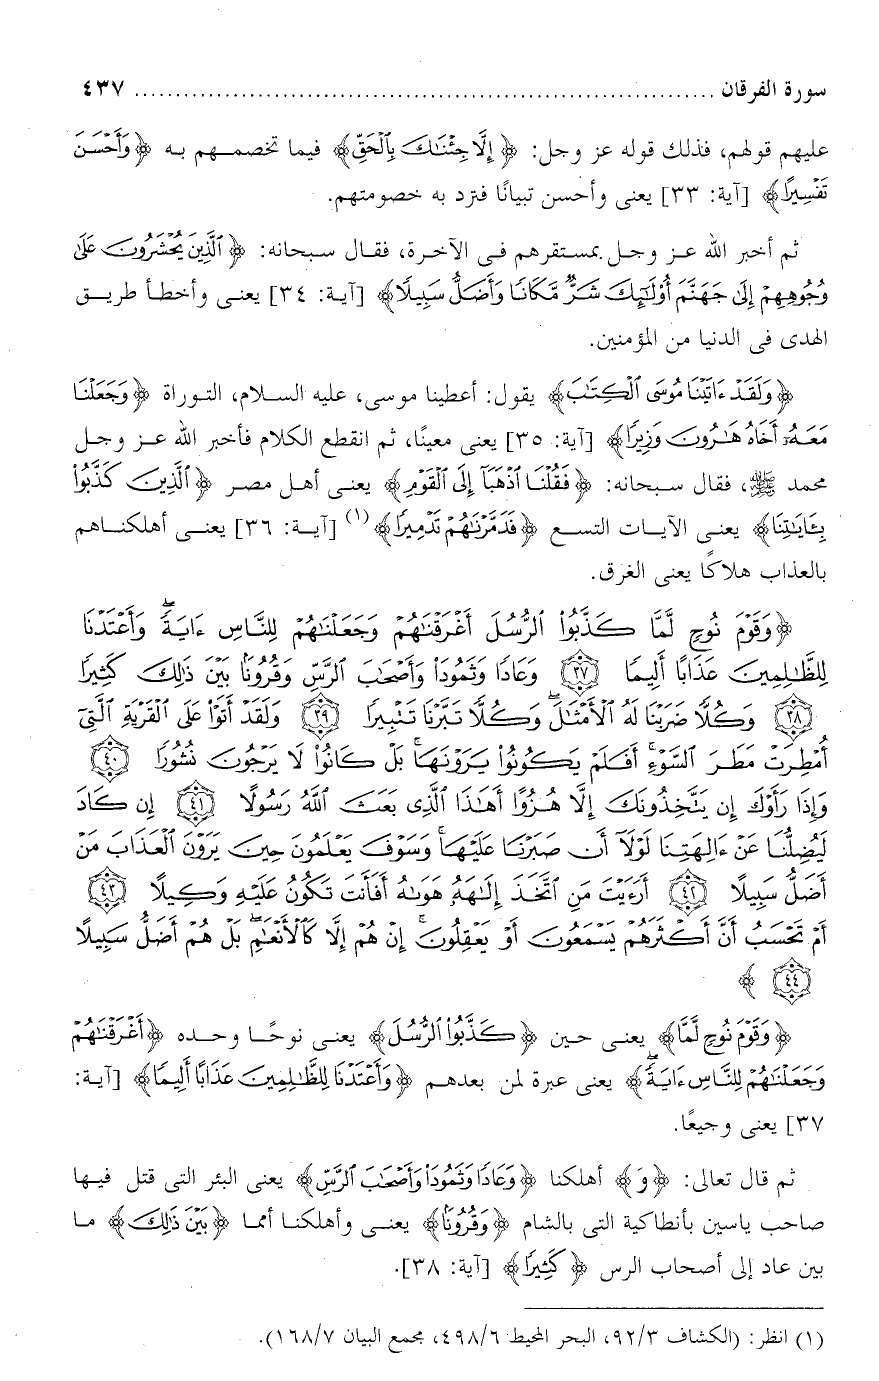 سورة الفرقان ........................................................................ ٤٣٧
عليهم قولهم، فذلك قوله عز وجل: ﴿إِلَّا جِئْنَٰكَ بِٱلْحَقِّ﴾ فيما تخصمهم به ﴿وَأَحْسَنَ
تَفْسِيرًا﴾ [آية: ٣٣] يعنى وأحسن تبيانًا فترد به خصومتهم.
ثم أخبر الله عز وجل بمستقرهم فى الآخرة، فقال سبحانه: ﴿ٱلَّذِينَ يُحْشَرُونَ عَلَىٰ
وُجُوهِهِمْ إِلَىٰ جَهَنَّمَ أُو۟لَٰٓئِكَ شَرٌّ مَّكَانًا وَأَضَلُّ سَبِيلًا﴾ [آية: ٣٤] يعنى وأخطأ طريق
الهدى فى الدنيا من المؤمنين.
﴿وَلَقَدْ ءَاتَيْنَا مُوسَى ٱلْكِتَٰبَ﴾ يقول: أعطينا موسى، عليه السلام، التوراة ﴿وَجَعَلْنَا
مَعَهُۥٓ أَخَاهُ هَٰرُونَ وَزِيرًا﴾ [آية: ٣٥] يعنى معينًا، ثم انقطع الكلام فأخبر الله عز وجل
محمد ﷺ، فقال سبحانه: ﴿فَقُلْنَا ٱذْهَبَآ إِلَى ٱلْقَوْمِ﴾ يعنى أهل مصر ﴿ٱلَّذِينَ كَذَّبُوا۟
بِـَٔايَٰتِنَا﴾ يعنى الآيات التسع ﴿فَدَمَّرْنَٰهُمْ تَدْمِيرًا﴾(١) [آية: ٣٦] يعنى أهلكناهم
بالعذاب هلاكًا يعنى الغرق.
﴿وَقَوْمَ نُوحٍ لَّمَّا كَذَّبُوا۟ ٱلرُّسُلَ أَغْرَقْنَٰهُمْ وَجَعَلْنَٰهُمْ لِلنَّاسِ ءَايَةً ۖ وَأَعْتَدْنَا
لِلظَّٰلِمِينَ عَذَابًا أَلِيمًا ٣٧ وَعَادًا وَثَمُودَا۟ وَأَصْحَٰبَ ٱلرَّسِّ وَقُرُونًۢا بَيْنَ ذَٰلِكَ كَثِيرًا
٣٨ وَكُلًّا ضَرَبْنَا لَهُ ٱلْأَمْثَٰلَ ۖ وَكُلًّا تَبَّرْنَا تَتْبِيرًا ٣٩ وَلَقَدْ أَتَوْا۟ عَلَى ٱلْقَرْيَةِ ٱلَّتِىٓ
أُمْطِرَتْ مَطَرَ ٱلسَّوْءِ ۚ أَفَلَمْ يَكُونُوا۟ يَرَوْنَهَا ۚ بَلْ كَانُوا۟ لَا يَرْجُونَ نُشُورًا ٤٠
وَإِذَا رَأَوْكَ إِن يَتَّخِذُونَكَ إِلَّا هُزُوًا أَهَٰذَا ٱلَّذِى بَعَثَ ٱللَّهُ رَسُولًا ٤١ إِن كَادَ
لَيُضِلُّنَا عَنْ ءَالِهَتِنَا لَوْلَآ أَن صَبَرْنَا عَلَيْهَا ۚ وَسَوْفَ يَعْلَمُونَ حِينَ يَرَوْنَ ٱلْعَذَابَ مَنْ
أَضَلُّ سَبِيلًا ٤٢ أَرَءَيْتَ مَنِ ٱتَّخَذَ إِلَٰهَهُۥ هَوَىٰهُ أَفَأَنتَ تَكُونُ عَلَيْهِ وَكِيلًا ٤٣
أَمْ تَحْسَبُ أَنَّ أَكْثَرَهُمْ يَسْمَعُونَ أَوْ يَعْقِلُونَ ۚ إِنْ هُمْ إِلَّا كَٱلْأَنْعَٰمِ ۖ بَلْ هُمْ أَضَلُّ سَبِيلًا
٤٤ ﴾
﴿وَقَوْمَ نُوحٍ لَّمَّا﴾ يعنى حين ﴿كَذَّبُوا۟ ٱلرُّسُلَ﴾ يعنى نوحًا وحده ﴿أَغْرَقْنَٰهُمْ
وَجَعَلْنَٰهُمْ لِلنَّاسِ ءَايَةً ۖ﴾ يعنى عبرة لمن بعدهم ﴿وَأَعْتَدْنَا لِلظَّٰلِمِينَ عَذَابًا أَلِيمًا﴾ [آية:
٣٧] يعنى وجيعًا.
ثم قال تعالى: ﴿وَ﴾ أهلكنا ﴿وَعَادًا وَثَمُودَا۟ وَأَصْحَٰبَ ٱلرَّسِّ﴾ يعنى البئر التى قتل فيها
صاحب ياسين بأنطاكية التى بالشام ﴿وَقُرُونًۢا﴾ يعنى وأهلكنا أممًا ﴿بَيْنَ ذَٰلِكَ﴾ ما
بين عاد إلى أصحاب الرس ﴿كَثِيرًا﴾ [آية: ٣٨].
(١) انظر: (الكشاف ٩٢/٣، البحر المحيط ٤٩٨/٦، مجمع البيان ١٦٨/٧).